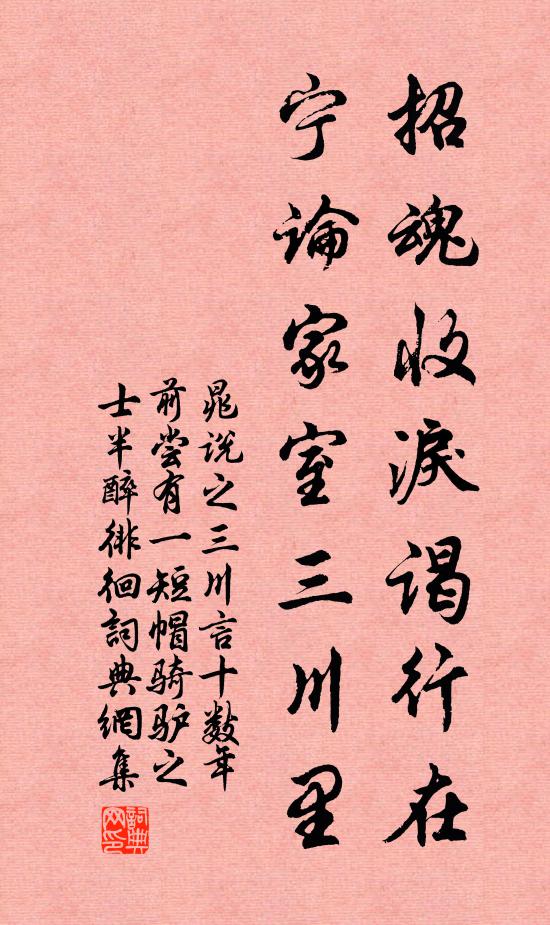 招魂收淚谒行在
宁論家室三川里
晁说之三川言十数年
前尝有一短帽骑驴之
士半醉徘徊詞典網集
詞典
网印